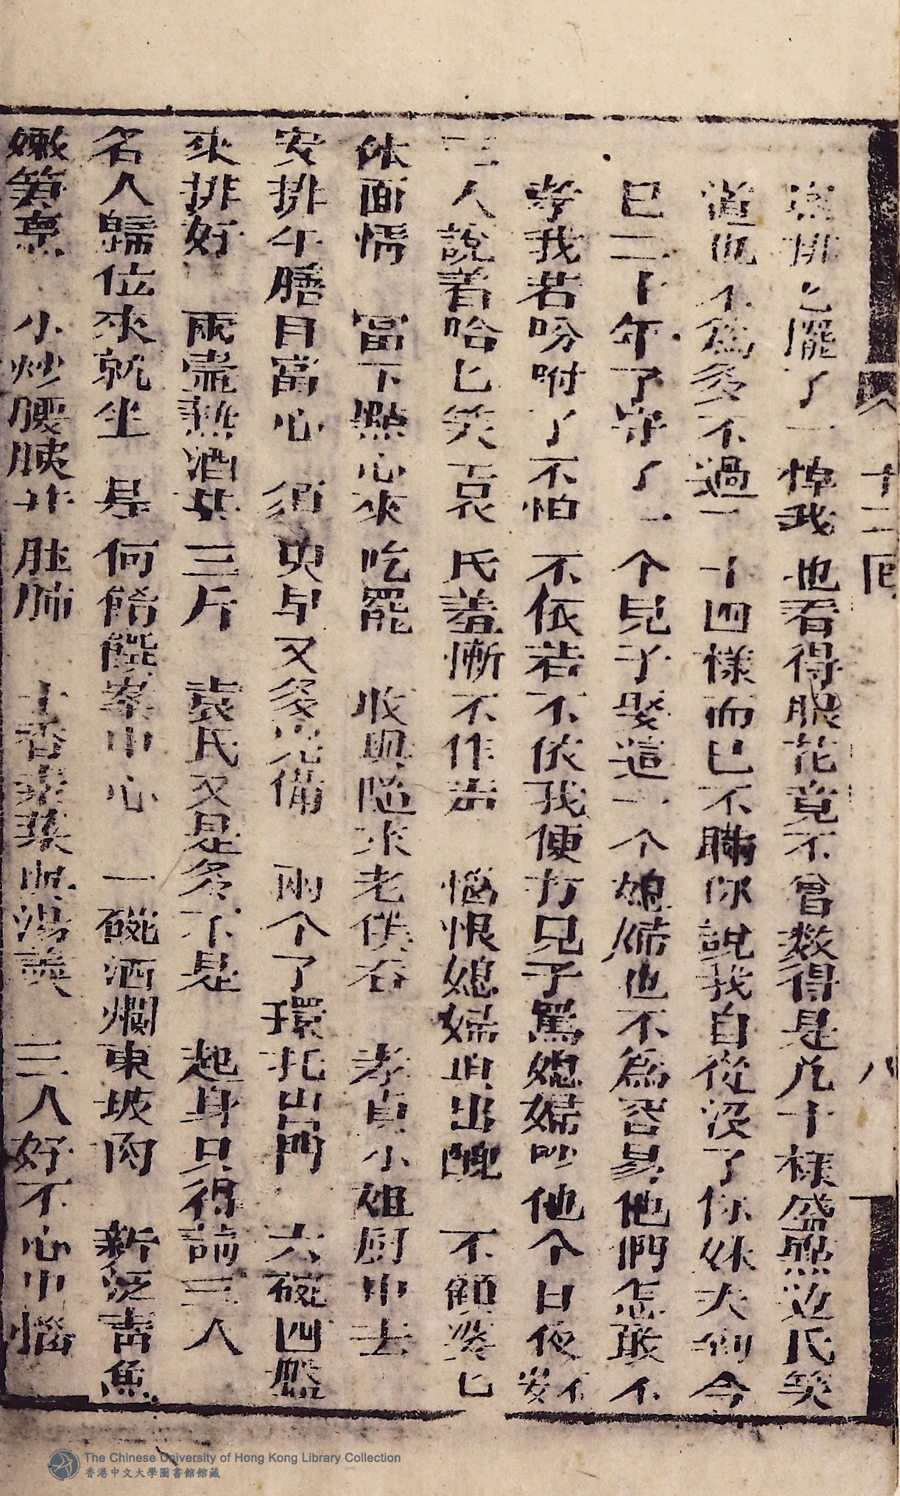 十二回
八
排匕擺了一棹我也看得眼花竟不曾数得是几十樣盛㸃边氏笑
道也不為多不過二十四樣而已不瞞你説我自從没了你妹夫到今
已二十年了守了一个兒子娶這一个媳婦也不為容易他們怎敢不
孝我若吩咐了不怕不依若不依我便打兒子罵媳婦吵他个日夜不安
三人説着哈匕笑袁氏羞慚不作声 惱恨媳婦出醜 不顧婆匕
休面情 當下㸃心來吃罷 收與隨來老僕 孝貞小姐厨中去
安排午膳自當心 須臾早又多完備 兩个了環托出門 六碗四盤
來排好 兩壼燕酒共三斤 袁氏又是多不是 起身只得請三人
名人歸位來就坐 是何餚饌案中心 一碗酒爛東坡肉 新泛青魚
嫩笋烹 小炒腰胰并肚肺 十香素菜與湯羮 三人好不心中惱
The Chinese University of Hong Kong Library Collection
香港中文大學圖書館館藏